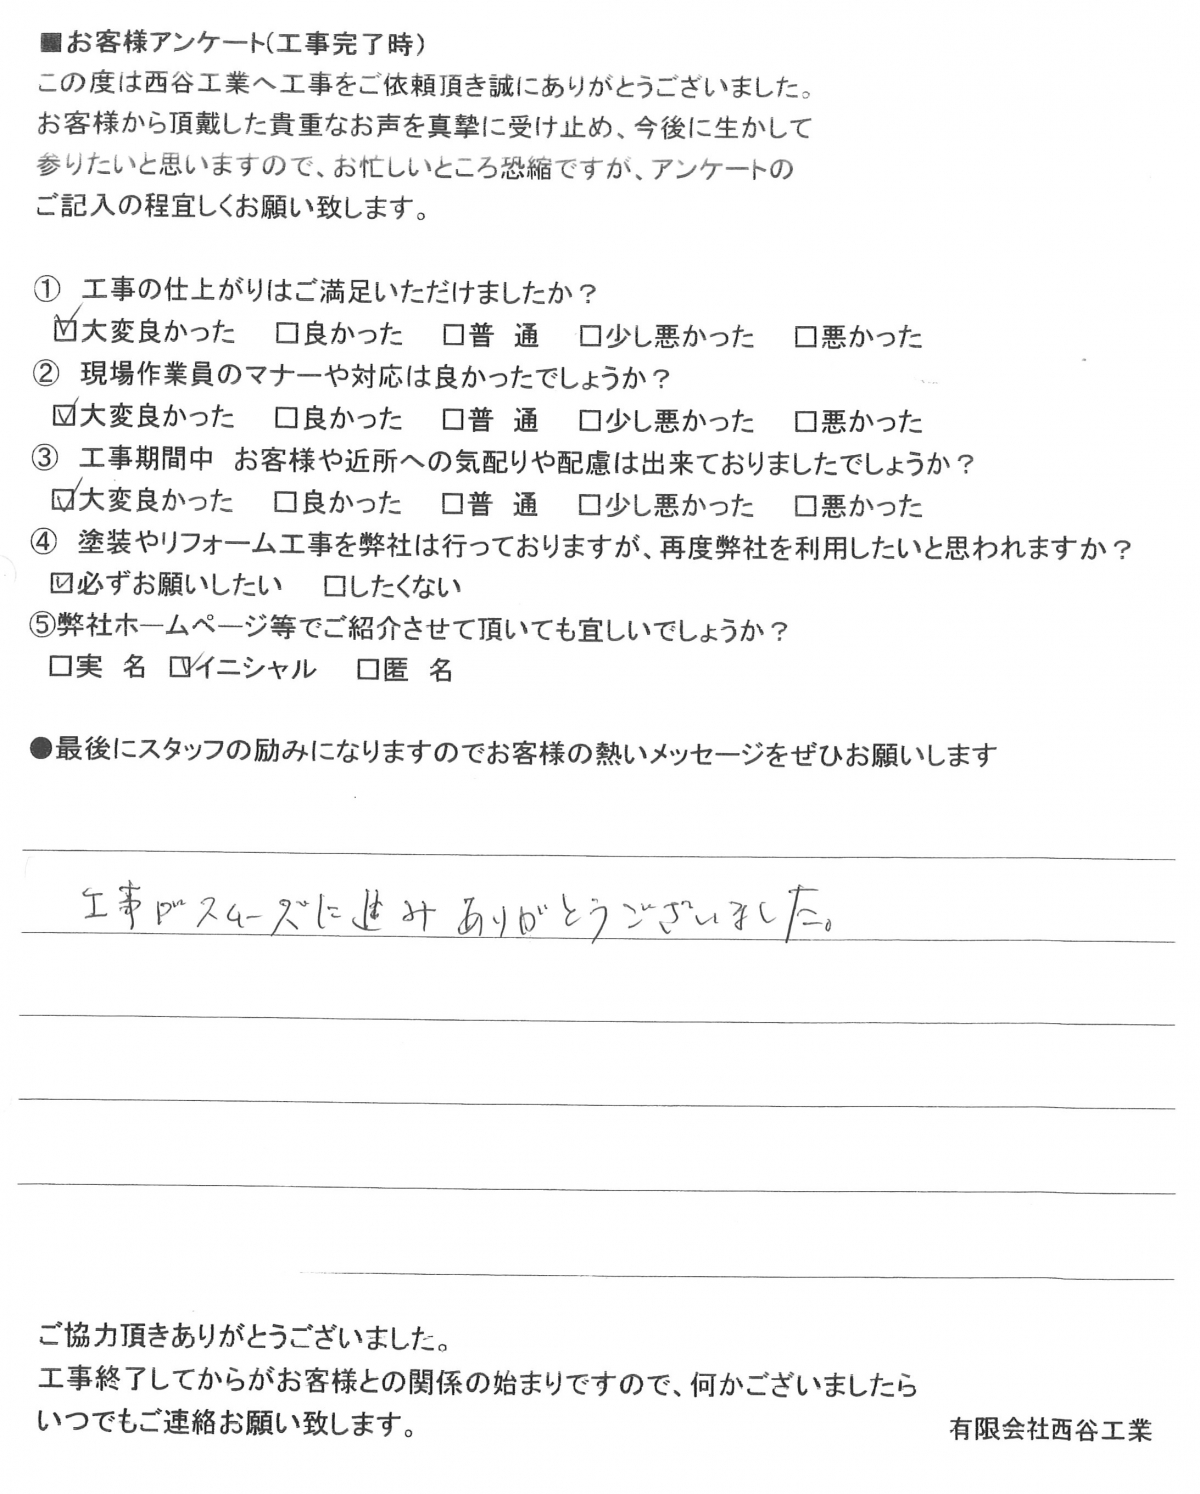 ■お客様アンケート(工事完了時)
この度は西谷工業へ工事をご依頼頂き誠にありがとうございました。
お客様から頂戴した貴重なお声を真摯に受け止め、今後に生かして
参りたいと思いますので、お忙しいところ恐縮ですが、アンケートの
ご記入の程宜しくお願い致します。
① 工事の仕上がりはご満足いただけましたか？
☑大変良かった □良かった □普 通 □少し悪かった □悪かった
② 現場作業員のマナーや対応は良かったでしょうか？
☑大変良かった □良かった □普 通 □少し悪かった □悪かった
③ 工事期間中 お客様や近所への気配りや配慮は出来ておりましたでしょうか？
☑大変良かった □良かった □普 通 □少し悪かった □悪かった
④ 塗装やリフォーム工事を弊社は行っておりますが、再度弊社を利用したいと思われますか？
☑必ずお願いしたい □したくない
⑤弊社ホームページ等でご紹介させて頂いても宜しいでしょうか？
□実 名 ☑イニシャル □匿 名
●最後にスタッフの励みになりますのでお客様の熱いメッセージをぜひお願いします
工事がスムーズに進みありがとうございました。
ご協力頂きありがとうございました。
工事終了してからがお客様との関係の始まりですので、何かございましたら
いつでもご連絡お願い致します。
有限会社西谷工業